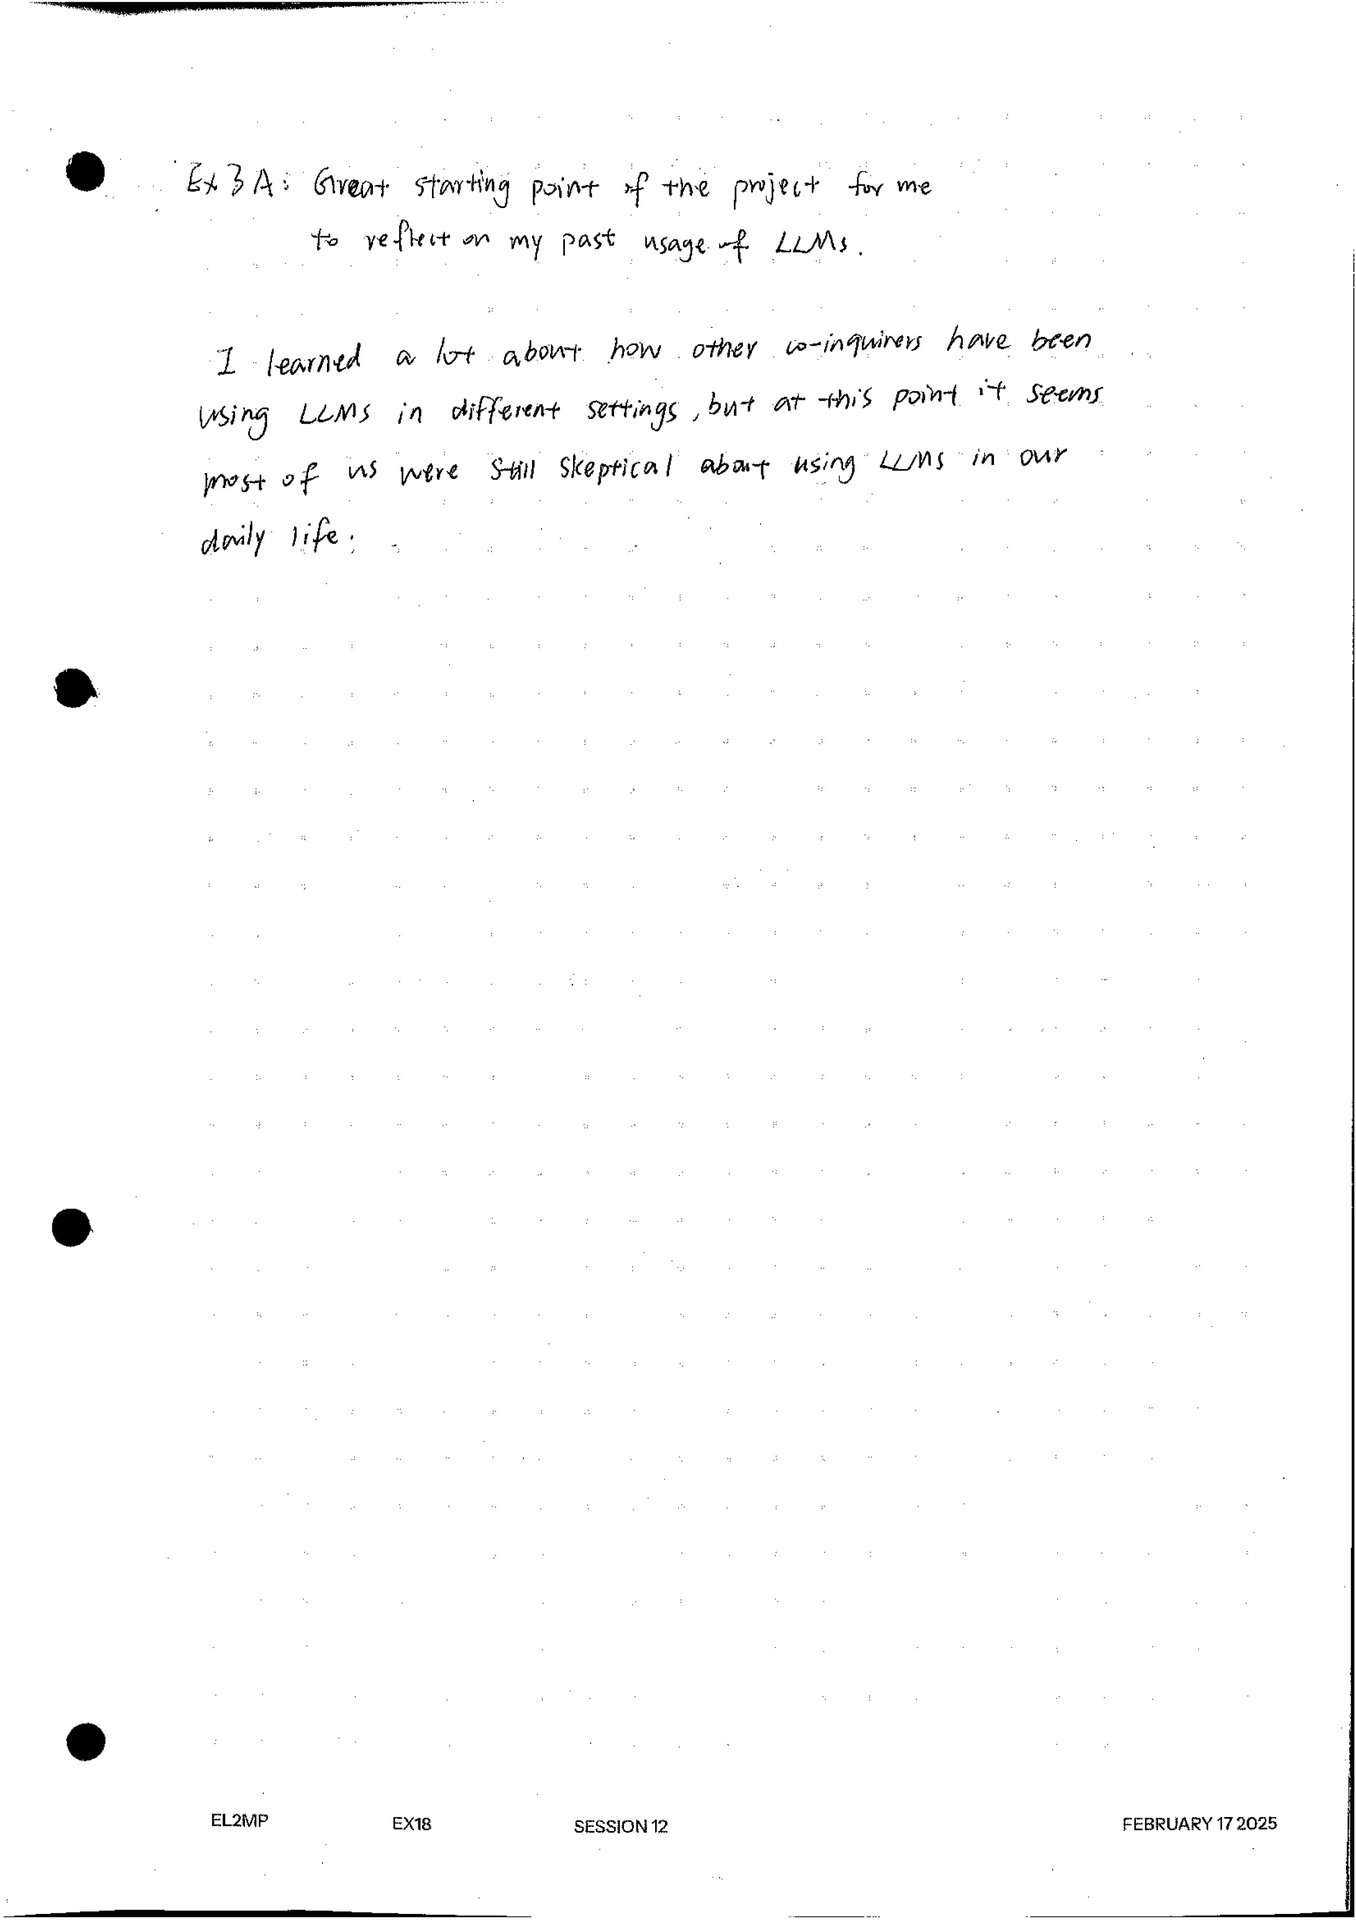 Ex 3A: Great starting point of the project for me
to reflect on my past usage of LLMs.
I learned a lot about how other co-inquirers have been
using LLMs in different settings, but at this point it seems
most of us were still skeptical about using LLMs in our
daily life.
EL2MP EX18 SESSION 12 FEBRUARY 17 2025